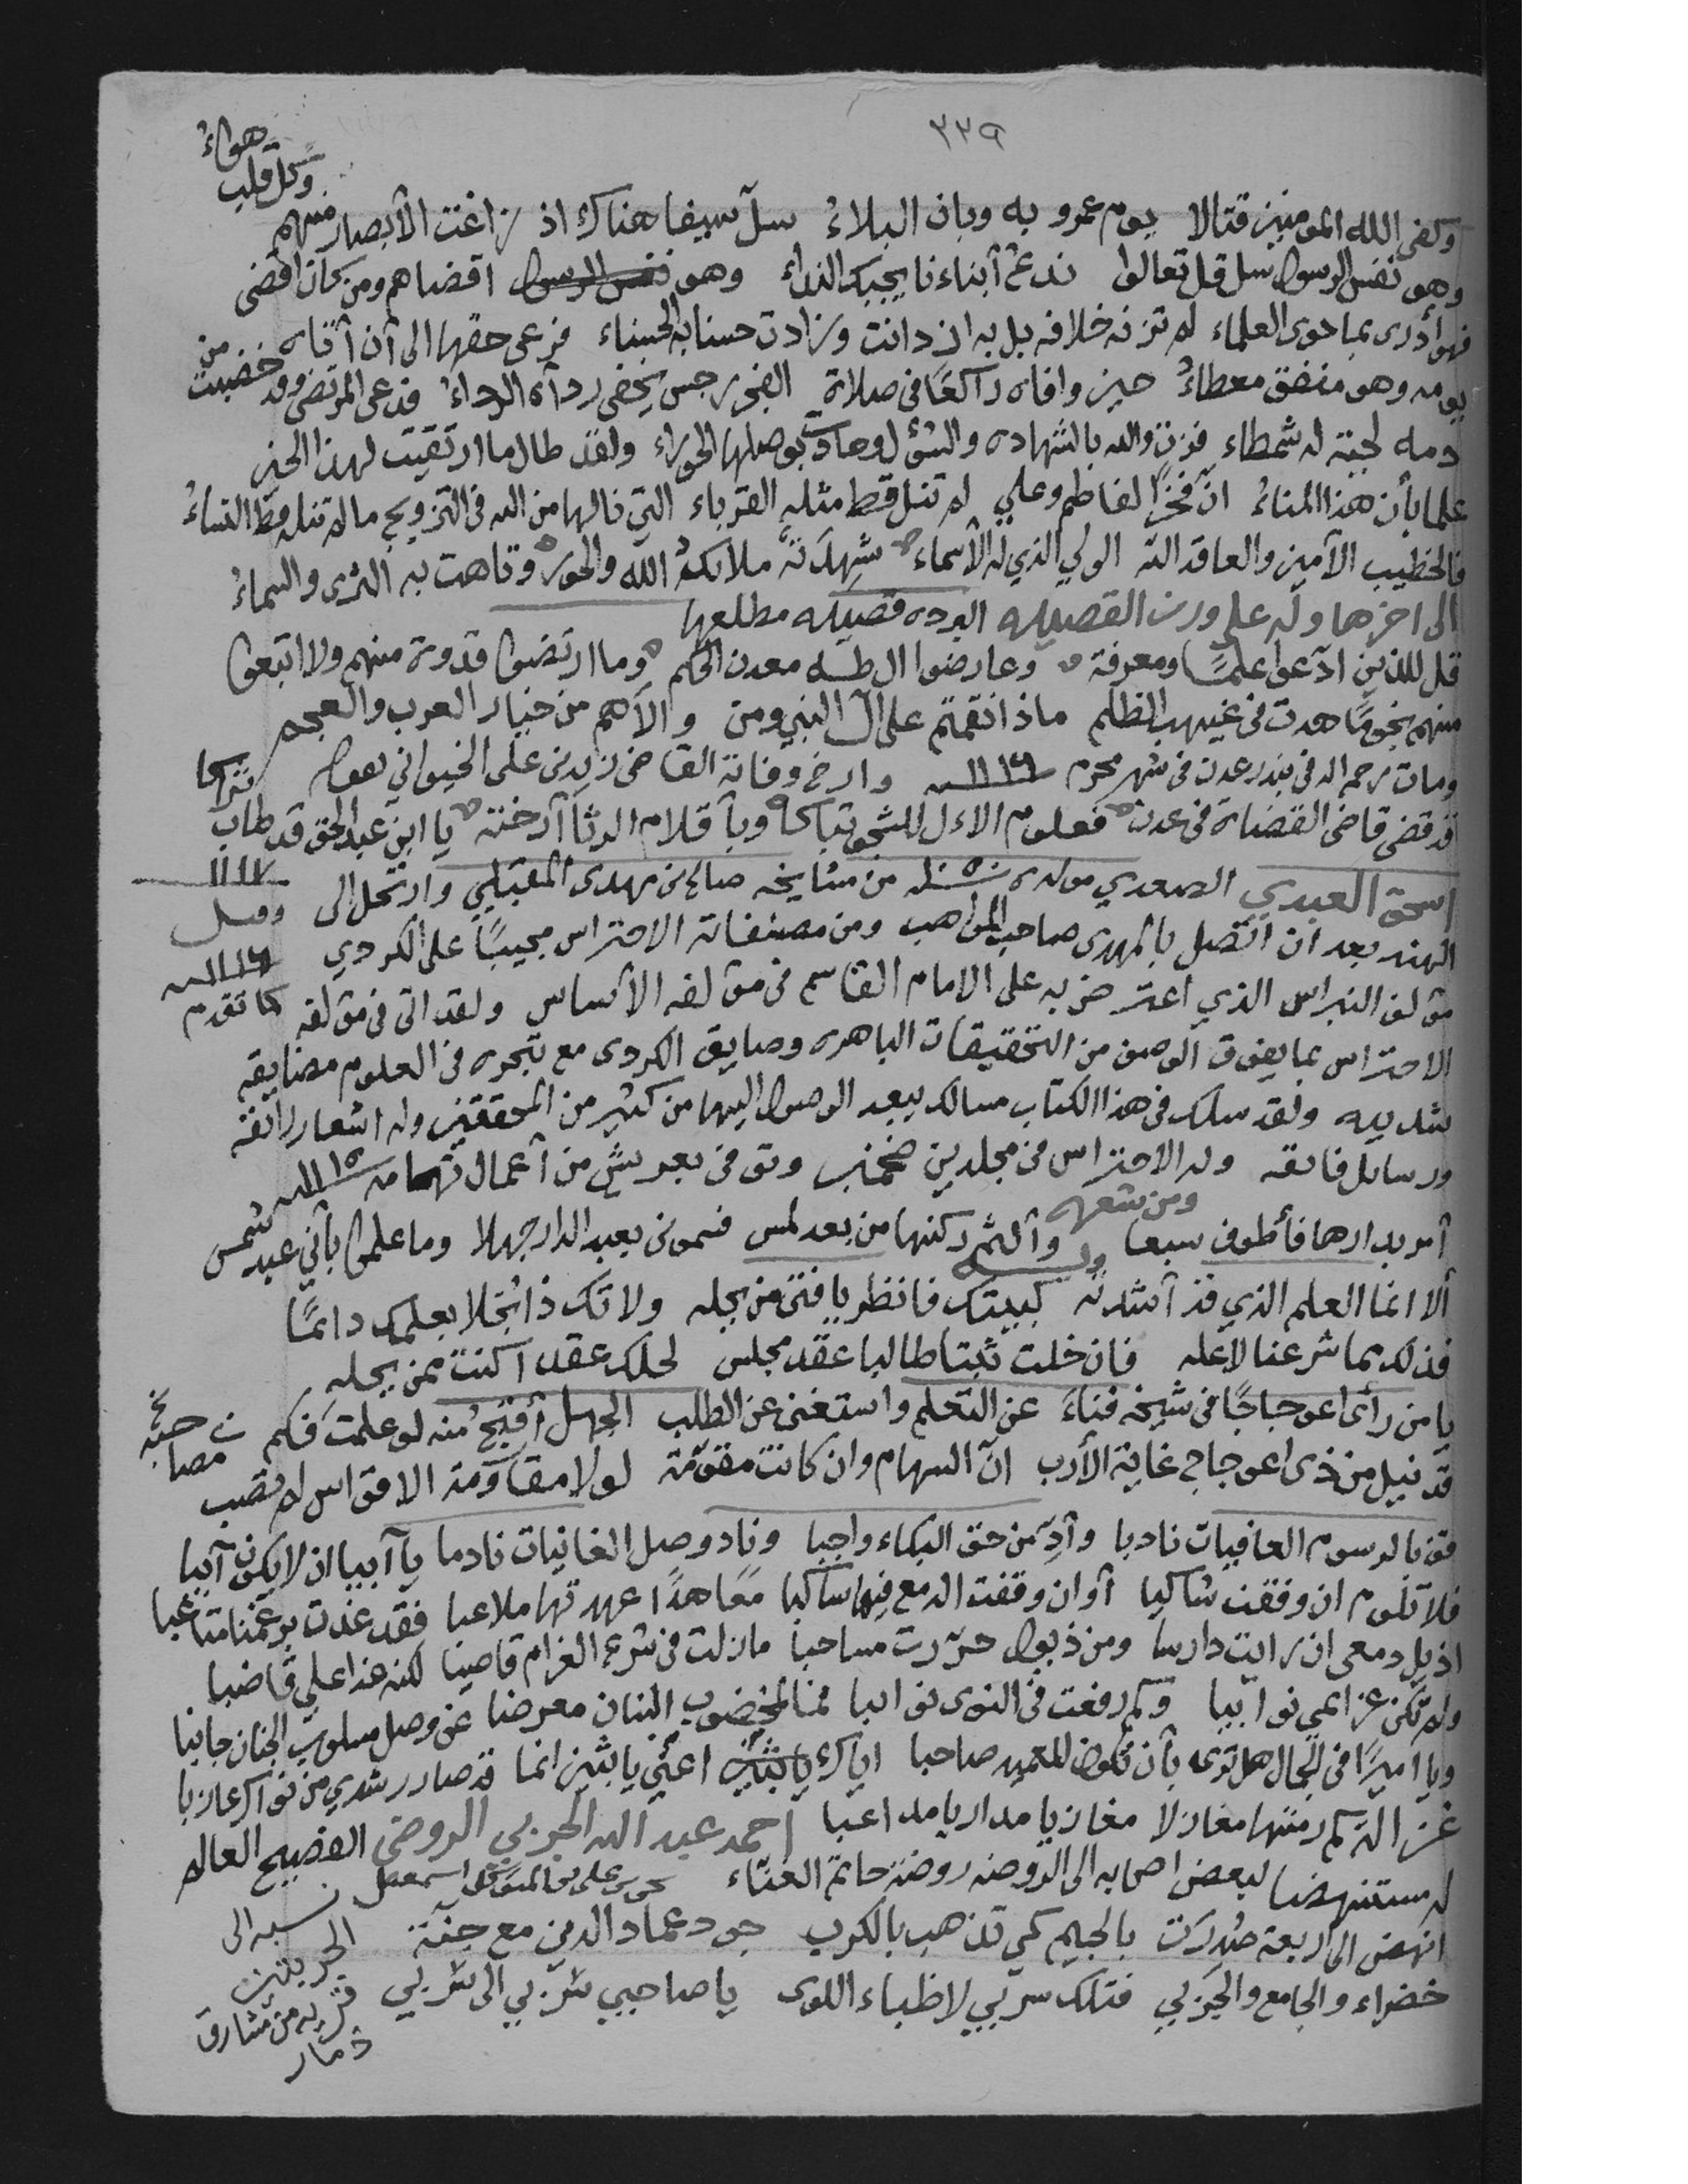 ٣٣٩
هواء
وكل قلب
وكفى الله المومنين قتالا يوم عمرو به وبان البلاء سل سيفا هناك اذ زاغت الأبصار منهم
وهو نفس الرسول سل قل تعالوا ندع أبناءنا يجبك النداء وهو نفس الرسول اقضاهم ومن كان اقضى
فهو أدرى بما حوى العلماء لم تزنه خلافه بل به ازدانت وزادت حسنا به الحسناء فرعى حقها الى أن أتاه من
يومه وهو منفق معطاء حين وافاه راكعا في صلاة الفجر رجس يخفى رداه الرداء فدعى المرتضى وقد خضبت
دمه لحيته له شمطاء فزت والله بالشهاده والسؤل وحادت بوصلها الحوراء ولقد طال ما ارتقيت لهذا الحين
علما بأن هذا المناء ان فخرًا لفاطم وعلي لم تنل قط مثله القرباء التي نالها من الله في التزويج ما لم تنله قط النساء
فالخطيب الأمين والعاقد الله الولي الذي له الأسماء شهدته ملائكة الله والحور وتاهت به الثرى والسماء
الى اخرها وله على وزن القصيده البرده قصيده مطلعها
قل للذين ادعوا علمًا ومعرفة وعارضوا ال طه معدن الحكم وما ارتضوا قدوة منهم ولا اتبعوا
منهم نجومًا هدت في غيهب الظلم ماذا نقمتم على آل النبي ومن والاهم من خيار العرب والعجم
ومات رحمه الله في بندر عدن في شهر محرم ١١١٦ وارخ وفاته القاضي زيد بن علي الخيواني بقوله
قد قضى قاضي القضاة في عدن فعلوم الاءل للشجو تباكا وبأقلام الرثا أرخته يا ابن عبد الحق قد طاب ثراكا
١١١٧
اسحق العبدي الصعدي مولده ١٠٥٠ من مشايخه صالح بن مهدى المقبلي وارتحل الى
الهند بعد ان اتصل بالمهدى صاحب المواهب ومن مصنفاته الاحتراس مجيبًا على الكردي وقيل ١١١٦
مؤلف النبراس الذي اعترض به على الامام القاسم في مؤلفه الأساس ولقد اتى في مؤلفه كما تقدم
الاحتراس بما يفوق الوصف من التحقيقات الباهره وضايق الكردى مع تبحره في العلوم مضايقه
شديده ولقد سلك في هذا الكتاب مسالك يبعد الوصول اليها من كثير من المحققين وله اشعار رائقه
ورسائل فائقه وله الاحتراس في مجلدين ضخمين وتوفى بعريش من أعمال تهامه ١١١٥
ومن شعره
أمر بدارها فأطوف سبعا وألثم ركنها من بعد لمس فسمونى بعبد الدار جهلا وما علموا بأني عبد شمس
وله
ألا انما العلم الذي قد أشدته كبيتك فانظر يا فتى من يحله ولا تك ذا بخلا بعلمك دائمًا
فذلك مما شرعنا لا يحله فان خلت ثبتا طالبا عقد مجلس لحلك عقدا كنت ممن يحله
يا من رأى اعوجاجًا في شيخه فناء عن التعلم واستغنى عن الطلب الجهل أقبح منه لو علمت فكم
قد نيل من ذى اعوجاج غاية الأرب ان السهام وان كانت مقومة لولا مقاومة الاقواس لم تصب
قف بالرسوم العافيات نادبا وأد من حق البكاء واجبا وناد وصل الغانيات نادما يا آيبا ان لا يكون آيبا
فلا تلوم ان وقفت شاكيا أو ان وقفت الدمع فيها ساكبا معاهدًا عهدتها ملاعبا فقد غدت برغمنا متاعبا
اذيل دمعى ان رايت دارسا ومن ذيول حررت مساحبا مازلت في شرع الغرام قاصيا لكنه غدا علي قاضيا
ولم تكن عزائمي نوائبا وكم دفعت في النوى نوائبا فما لمخضوب البنان معرضا عن وصل مسلوب الجنان جانبا
ويا اميرًا في الجمال هل ترى بأن تكون للعميد صاحبا اياك يا بثين اعني يا بثين انما قد صار رشدي من نواك عازبا
غزالة كم رمتها مغازلا مغازيا مداريا مداعبا احمد عبد الله الجربي الروضي الفصيح العالم
له مستنهضا لبعض اصحابه الى الروضه روضة حاتم الغناء
انهض الى اربعة صدرت بالجيم كي تذهب بالكرب جود عماد الدين مع جنة
خضراء والجامع والجربي فتلك سربي لاظباء اللوى يا صاحبي سربي الى سربي
نسبه الى
الجربتين
قريه من مشارق
ذمار